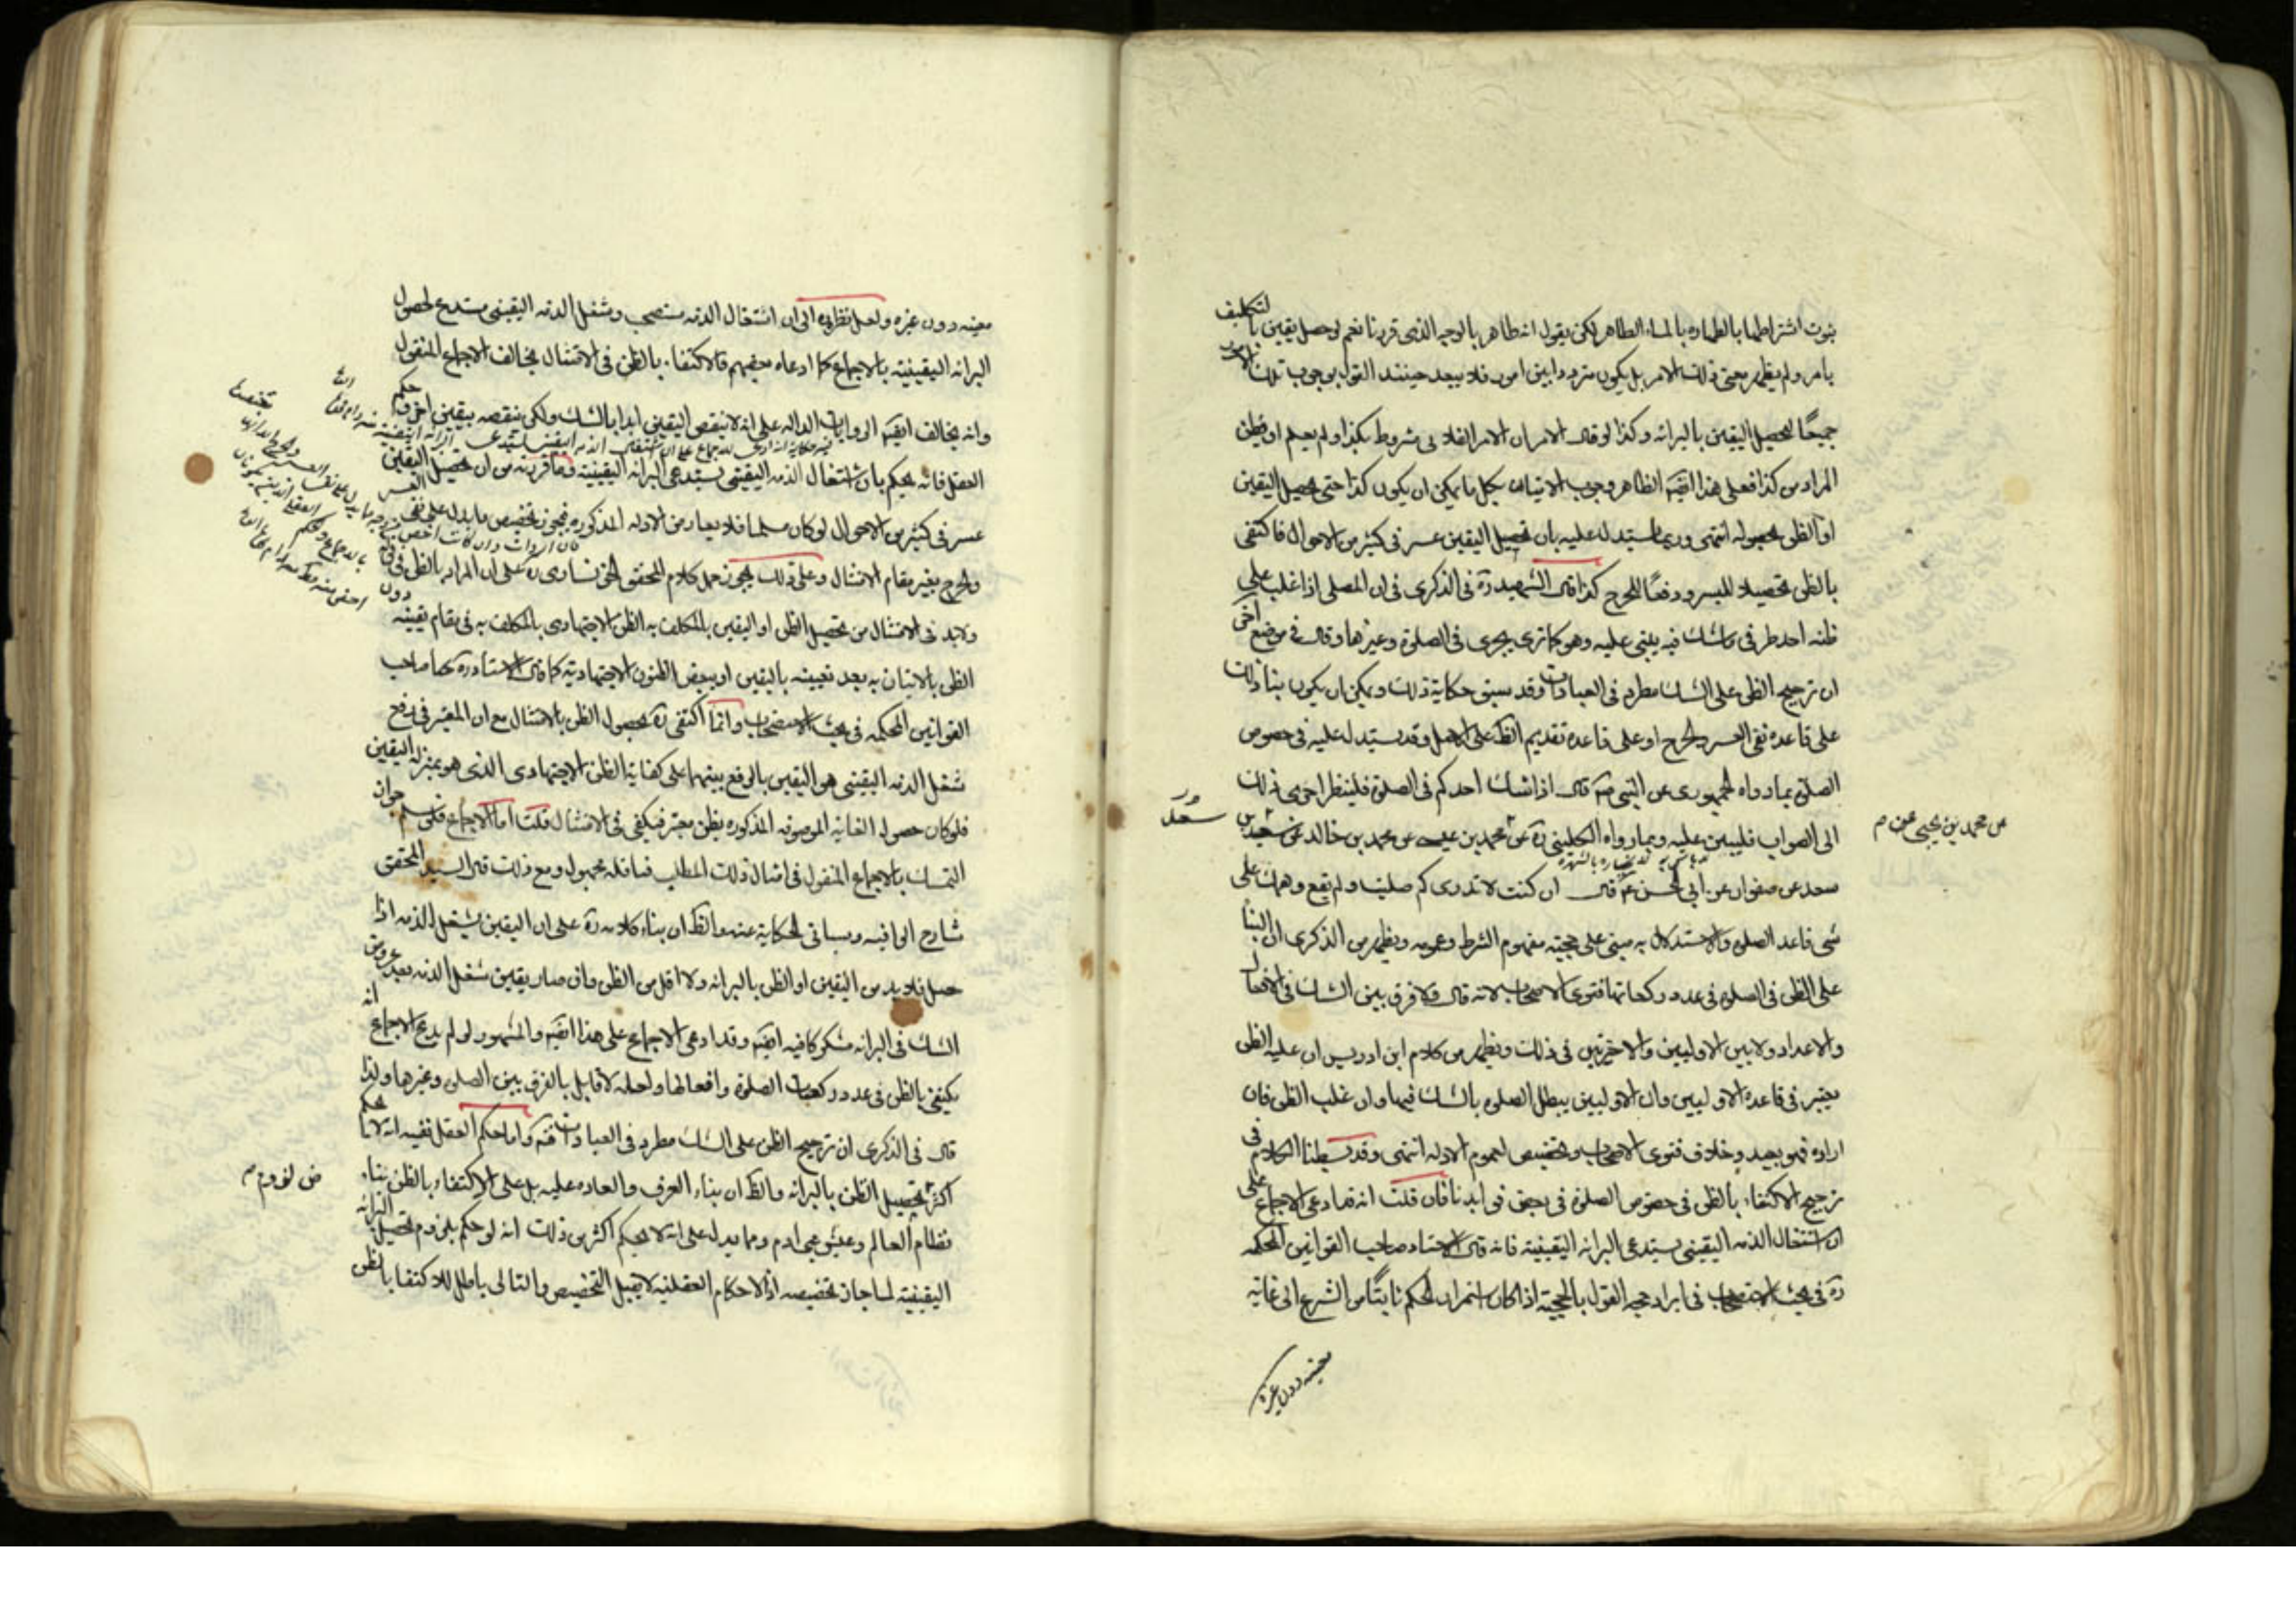 ثبوت اشتراطها بالطهاره بالماء الطاهر لكن يقول انه طاهر بالوجه الذى قررنا نعم لو حصل يقين بالتكليف
بامر ولم يظهر معنى ذلك الامر بل يكون مترددا بين امور فلا يبعد حينئذ القول بوجوب تلك الامور
جميعًا لتحصيل اليقين بالبرائه وكذا لو قال الامر ان الامر الفلانى مشروط بكذا ولم يعلم او يظن
المراد من كذا فعلى هذا ايضا الظاهر وجوب الاتيان بكل ما يمكن ان يكون كذا حتى يحصل اليقين
او الظن بحصوله انتهى وربما يستدل عليه بان تحصيل اليقين عسر فى كثير من الاحوال فاكتفى
بالظن تحصيلا لليسر ودفعًا للحرج كذا قال الشهيد ره فى الذكرى فى ان المصلى اذا غلب على
ظنه احد طرفى ما شك فيه يبنى عليه وهو كما ترى يجرى فى الصلوة وغيرها وقال فى موضع اخر
ان ترجيح الظن على الشك مطرد فى العبادات وقد سبق حكاية ذلك ويمكن ان يكون بناء ذلك
على قاعده نفى العسر والحرج او على قاعده تقديم الظ على الاصل وقد يستدل عليه فى خصوص
الصلوة بما رواه الجمهور عن النبى ص قال اذا شك احدكم فى الصلوة فلينظر احرى ذلك
الى الصواب فليبن عليه وبما رواه الكلينى ره عن محمد بن عيسى عن محمد بن خالد عن سعد بن
عن محمد بن يحيى عن م
سعد عن صفوان عن ابى الحسن ع قال ان كنت لا تدرى كم صليت ولم يقع وهمك على
شى فاعد الصلوة والاستدلال به مبنى على حجية مفهوم الشرط وعمومه ويظهر من الذكرى ان البناء
على الظن فى الصلوة فى عدد ركعاتها فتوى الاصحاب لانه قال ولا فرق بين الشك فى الافعال
والاعداد ولا بين الاوليين والاخيرتين فى ذلك ويظهر من كلام ابن ادريس ان غلبه الظن
يعتبر فى قاعدة الاوليين وان الاوليين يبطل الصلوة بالشك فيها وان غلب الظن فان
اراده فهو بعيد وخلاف فتوى الاصحاب وتخصيص لعموم الادله انتهى وقد بسطنا الكلام فى
ترجيح الاكتفاء بالظن فى خصوص الصلوة فى بعض فوايدنا فان قلت انه قد ادعى الاجماع على
ان اشتغال الذمه اليقينى يستدعى البرائه اليقينية فانه قال الاستاد صاحب القوانين المحكمه
ره فى بحث الاستصحاب فى ايراد حجه القول بالحجية اذا كان استمرار الحكم ثابتًا من الشرع الى غاية
معينه دون غيره
معينه دون غيره ولعل نظره الى ان اشتغال الذمه مستصحب وشغل الذمه اليقينى مستدع لحصول
البرائه اليقينية بالاجماع كما ادعاه بعضهم فالاكتفاء بالظن فى الامتثال يخالف الاجماع المنقول
وانه يخالف ايضا الروايات الداله على انه لا ينقض اليقين ابدا بالشك ولكن ينقضه بيقين اخر وحكم
العقل فانه يحكم بان اشتغال الذمه اليقينى يستدعى البرائه اليقينية وما قررته من ان تحصيل اليقين
عسر فى كثير من الاحوال لو كان مسلما فلا يعارض الادله المذكوره فيجوز تخصيص ما يدل على نفى العسر
والحرج بغير مقام الامتثال وعلى ذلك يجوز حمل كلام المحقق الخونسارى ره على ان المراد بالظن فى قوله
ولا بد فى الامتثال من تحصيل الظن او اليقين بالمكلف به الظن الاجتهادى بالمكلف به فى مقام يقينه دون
الظن بالاتيان به بعد تعيينه باليقين او ببعض الظنون الاجتهادية كما قال الاستاد ره كما صاحب
القوانين المحكمه فى بحث الاستصحاب وانما اكتفى ره بحصول الظن بالامتثال مع ان المعتبر فى رفع
شغل الذمه اليقينى هو اليقين بالرفع بينهما على كفاية الظن الاجتهادى الذى هو بمنزله اليقين
فلو كان حصول الغاية الموصوفه المذكوره بظن معتبر فيكفى فى الامتثال قلت اما الاجماع فلو سلم جواز
التمسك بالاجماع المنقول فى امثال ذلك المطلب فناقله مجهول ومع ذلك قال السيد المحقق
شارح الوافيه وسياتى الحكاية عنه والظ ان بناء كلامه ره على ان اليقين بشغل الذمه اذا
حصل فلا بد من اليقين او الظن بالبرائه ولا اقل من الظن وان صار يقين شغل الذمه بعد عروض
الشك فى البرائه مشكوكا فيه ايضا وقد ادعى الاجماع على هذا ايضا والمشهور لو لم يدع الاجماع انه
يكتفى بالظن فى عدد ركعات الصلوة وافعالها ولعله لا قايل بالفرق بين الصلوة وغيرها ولذا
قال فى الذكرى ان ترجيح الظن على الشك مطرد فى العبادات فتم واما حكم العقل نفسه انه لا يحكم
اكثر من تحصيل الظن بالبرائه والظ ان بناء العرف والعاده عليه بل على الاكتفاء بالظن بناء
نظام العالم وعيش بنى ادم ومما يدل على انه لا يحكم اكثر من ذلك انه لو حكم بلزوم تحصيل البرائه
اليقينية لما جاز تخصيصه اذ الاحكام العقلية لا يقبل التخصيص والتالى باطل للاكتفاء بالظن